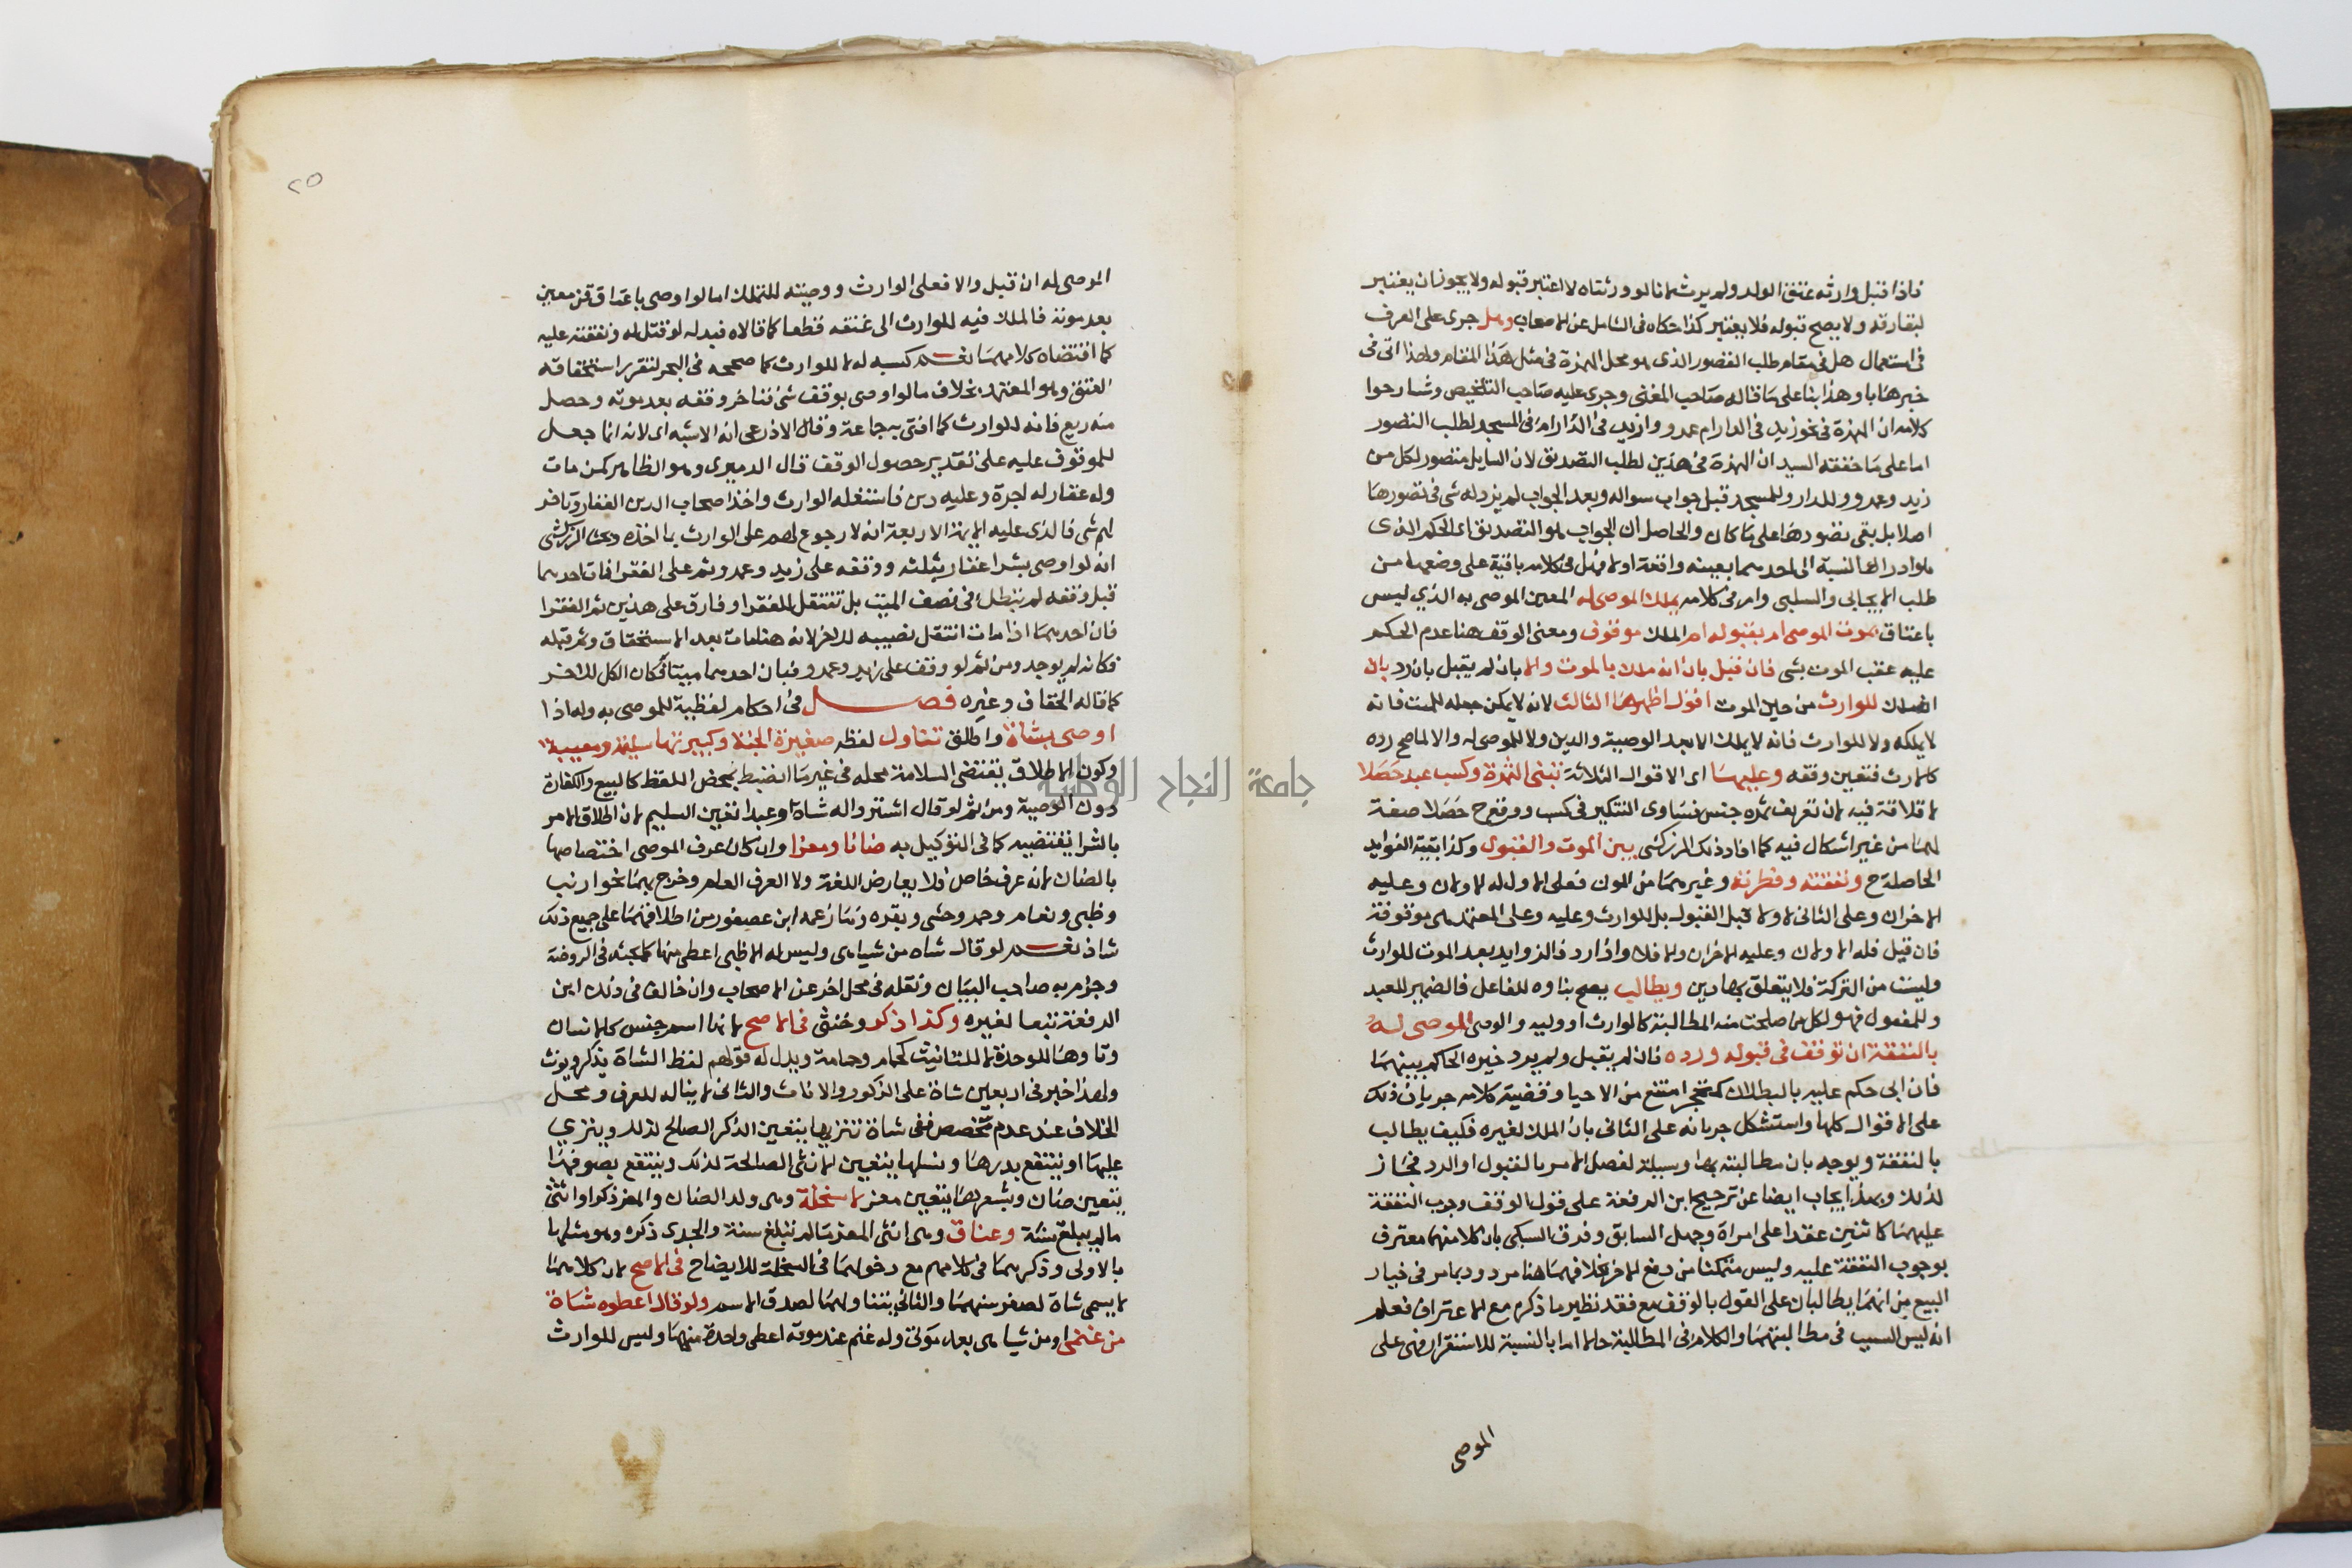 فاذا قبل وارثه عتق الولد ولم يرث شما نالو ورثتاه لا اعتبر قبوله ولا يجوز ان يعتبر
لبقا رقه ولا يصح قبوله فلا يعتبر كذا حكاه فى الشامل عن الاصحاب وهل جرى على العرف
فى استعمال هل فى مقام طلب التصور الذى هو محل الهمزة فى مثل هذا المقام ولهذا اتى فى
خبرها باو وهذا بنا على ما قاله صاحب المغنى وجرى عليه صاحب التلخيص وشارحوا
كلامه ان الهمزة فى نحو زيد فى الدار ام عمرو وازيد فى الدار ام فى المسجد لطلب التصور
اما على ما حققه السيد ان الهمزة فى هذين لطلب التصديق لان السايل متصور لكل من
زيد وعمرو وللدار وللمسجد قبل جواب سواله وبعد الجواب لم يزد له شى فى تصورها
اصلا بل بقى تصورها على ما كان والحاصل ان الجواب هو التصديق اى الحكم الذى
هو ادراك النسبة الى احدهما بعينه واقعة اولا فهل فى كلامه باقية على وضعها من
طلب الايجابى والسلبى وام فى كلامه يملك الموصى له المعين الموصى به الذي ليس
باعتاق بموت الموصى ام بقبوله ام الملك موقوف ومعنى الوقف هنا عدم الحكم
عليه عقب الموت بشى فان قبل بان انه ملك بالموت والا بان لم يقبل بان رد بان
انه ملك للوارث من حين الموت اقول اظهرها الثالث لانه لا يمكن جعله للميت فانه
لا يملكه ولا للوارث فانه لا يملك الا بعد الوصية والدين ولا للموصى له والا لما صح رده
كالارث فتعين وقفه وعليها اى الاقوال الثلاثة تبنى الثمرة وكسب عبد حصلا
لا قلاقة فيه لان تعريف ثمره جنس فساوى التنكير فى كسب ووقع ح حصلا صفة
لهما من غير اشكال فيه كما افاد ذلك الزركشى بين الموت والقبول وكذا بقية الفوايد
الحاصلة ح ونفقته وفطرته وغيرهما من المون فعلى الاول له الاولان وعليه
الاخران وعلى الثانى لا ولا قبل القبول بل للوارث وعليه وعلى المعتمد هى موقوفة
فان قبل فله الاولان وعليه الاخران والا فلا واذا رد فالزوايد بعد الموت للوارث
وليست من التركة فلا يتعلق بها دين ويطالب يصح بناوه للفاعل فالضمير للعبد
وللمفعول فهو لكل من صلحت منه المطالبة كالوارث او وليه والوصى الموصى له
بالنفقة ان توقف فى قبوله ورده فان لم يقبل ولم يرد خيره الحاكم بينهما
فان ابى حكم عليه بالبطلان كمتحجر امتنع من الاحيا وقضية كلامه جريان ذلك
على الاقوال كلها واستشكل جريانه على الثانى بان الملك لغيره فكيف يطالب
بالنفقة ويوجه بان مطالبته بها وسيلة لفصل الامر بالقبول او الرد فجاز
لذلك وبهذا يجاب ايضا عن ترجيح ابن الرفعة على قول الوقف وجوب النفقة
عليهما كاثنين عقدا على امراة وجهل السابق وفرق السبكى بان كلا منهما معترف
بوجوب النفقة عليه وليس متمكنا من دفع الاخر بخلافهما هنا مردود بما مر فى خيار
البيع من انهما يطالبان على القول بالوقف مع فقد نظير ما ذكره مع الاعتراف فعلم
انه ليس السبب فى مطالبتهما والكلام فى المطالبة حالا اما بالنسبة للاستقرار فهى على
الموصى
٢٥
الموصى له ان قبل والا فعلى الوارث ووصيته للتملك اما لو اوصى باعتاق قن معين
بعد موته فالملك فيه للوارث الى عتقه قطعا كما قالاه فبدله لو قتل له ونفقته عليه
كما اقتضاه كلامهما نعم كسبه له لا للوارث كما صححه فى البحر لتقرر استحقاقه
العتق وهو المعتمد بخلاف ما لو اوصى بوقف شئ فتاخر وقفه بعد موته وحصل
منه ريع فانه للوارث كما افتى به جماعة وقال الاذرعى انه الاشبه اى لانه انما جعل
للموقوف عليه على تقدير حصول الوقف قال الدميرى وهو الظاهر كمن مات
وله عقار له اجرة وعليه دين فاستغله الوارث واخذ اصحاب الدين العقار وتاخر
لهم شى فالذى عليه الايمة الاربعة انه لا رجوع لهم على الوارث بما اخذه وبحث الزركشى
انه لو اوصى بشرا عقار بثلثه ووقفه على زيد وعمرو ثم على الفقرا فمات احدهما
قبل وقفه لم تبطل فى نصف الميت بل تنتقل للفقرا وفارق على هذين ثم الفقرا
فان احدهما اذا مات انتقل نصيبه للاخر لانه هنا مات بعد الاستحقاق وثم قبله
فكانه لم يوجد ومن ثم لو وقف على زيد وعمرو فبان احدهما ميتا فكان الكل للاخر
كما قاله الخفاف وغيره فصل فى احكام لفظية للموصى به وله اذا
اوصى بشاة واطلق تناول لفظه صغيرة الجثة وكبيرتها سليمة ومعيبة
وكون الاطلاق يقتضى السلامة محله فى غير ما انضبط بمحض اللفظ كالبيع والكفارة
دون الوصية ومن ثم لو قال اشتروا له شاة او عبدا تعين السليم لان اطلاق الامر
بالشرا يقتضيه كما فى التوكيل به ضانا ومعزا وان كان عرف الموصى اختصاصها
بالضان لانه عرف خاص فلا يعارض اللغة ولا العرف العام وخرج بهما نحو ارنب
وظبى ونعام وحمر وحشى وبقره وما زعمه ابن عصفور من اطلاقهما على جميع ذلك
شاذ نعم لو قال شاه من شياهى وليس له الا ظبى اعطى منها كما بحثه فى الروضة
وجزم به صاحب البيان ونقله فى محل اخر عن الاصحاب وان خالف فى ذلك ابن
الرفعة تبعا لغيره وكذا ذكر وخنثى فى الاصح لانها اسم جنس كالانسان
وتاوها للوحدة لا للتانيث كحمام وحمامة ويدل له قولهم لفظ الشاة يذكر ويونث
ولهذا خبر فى اربعين شاة على الذكور والاناث والثانى لا يتناوله للعرف ومحل
الخلاف عند عدم مخصص ففى شاة ننزيها يتعين الذكر الصالح لذلك وينزي
عليها او ينتفع بدرها ونسلها يتعين الانثى الصالحة لذلك وينتفع بصوفها
يتعين ضان وبشعرها يتعين معز لا سخلة وهى ولد الضان والمعز ذكرا وانثى
مالم يبلغ سنة وعناق وهى انثى المعز مالم تبلغ سنة والجدى ذكره وهو مثلها
بالاولى وذكرهما فى كلامهم مع دخولهما فى السخلة للايضاح فى الاصح لان كلا منهما
لا يسمى شاة لصغر سنهما والثانى يتناولهما لصدق الاسم ولو قال اعطوه شاة
من غنمى او من شياهى بعد موتى وله غنم عند موته اعطى واحدة منها وليس للوارث
جامعة النجاح الوطنية